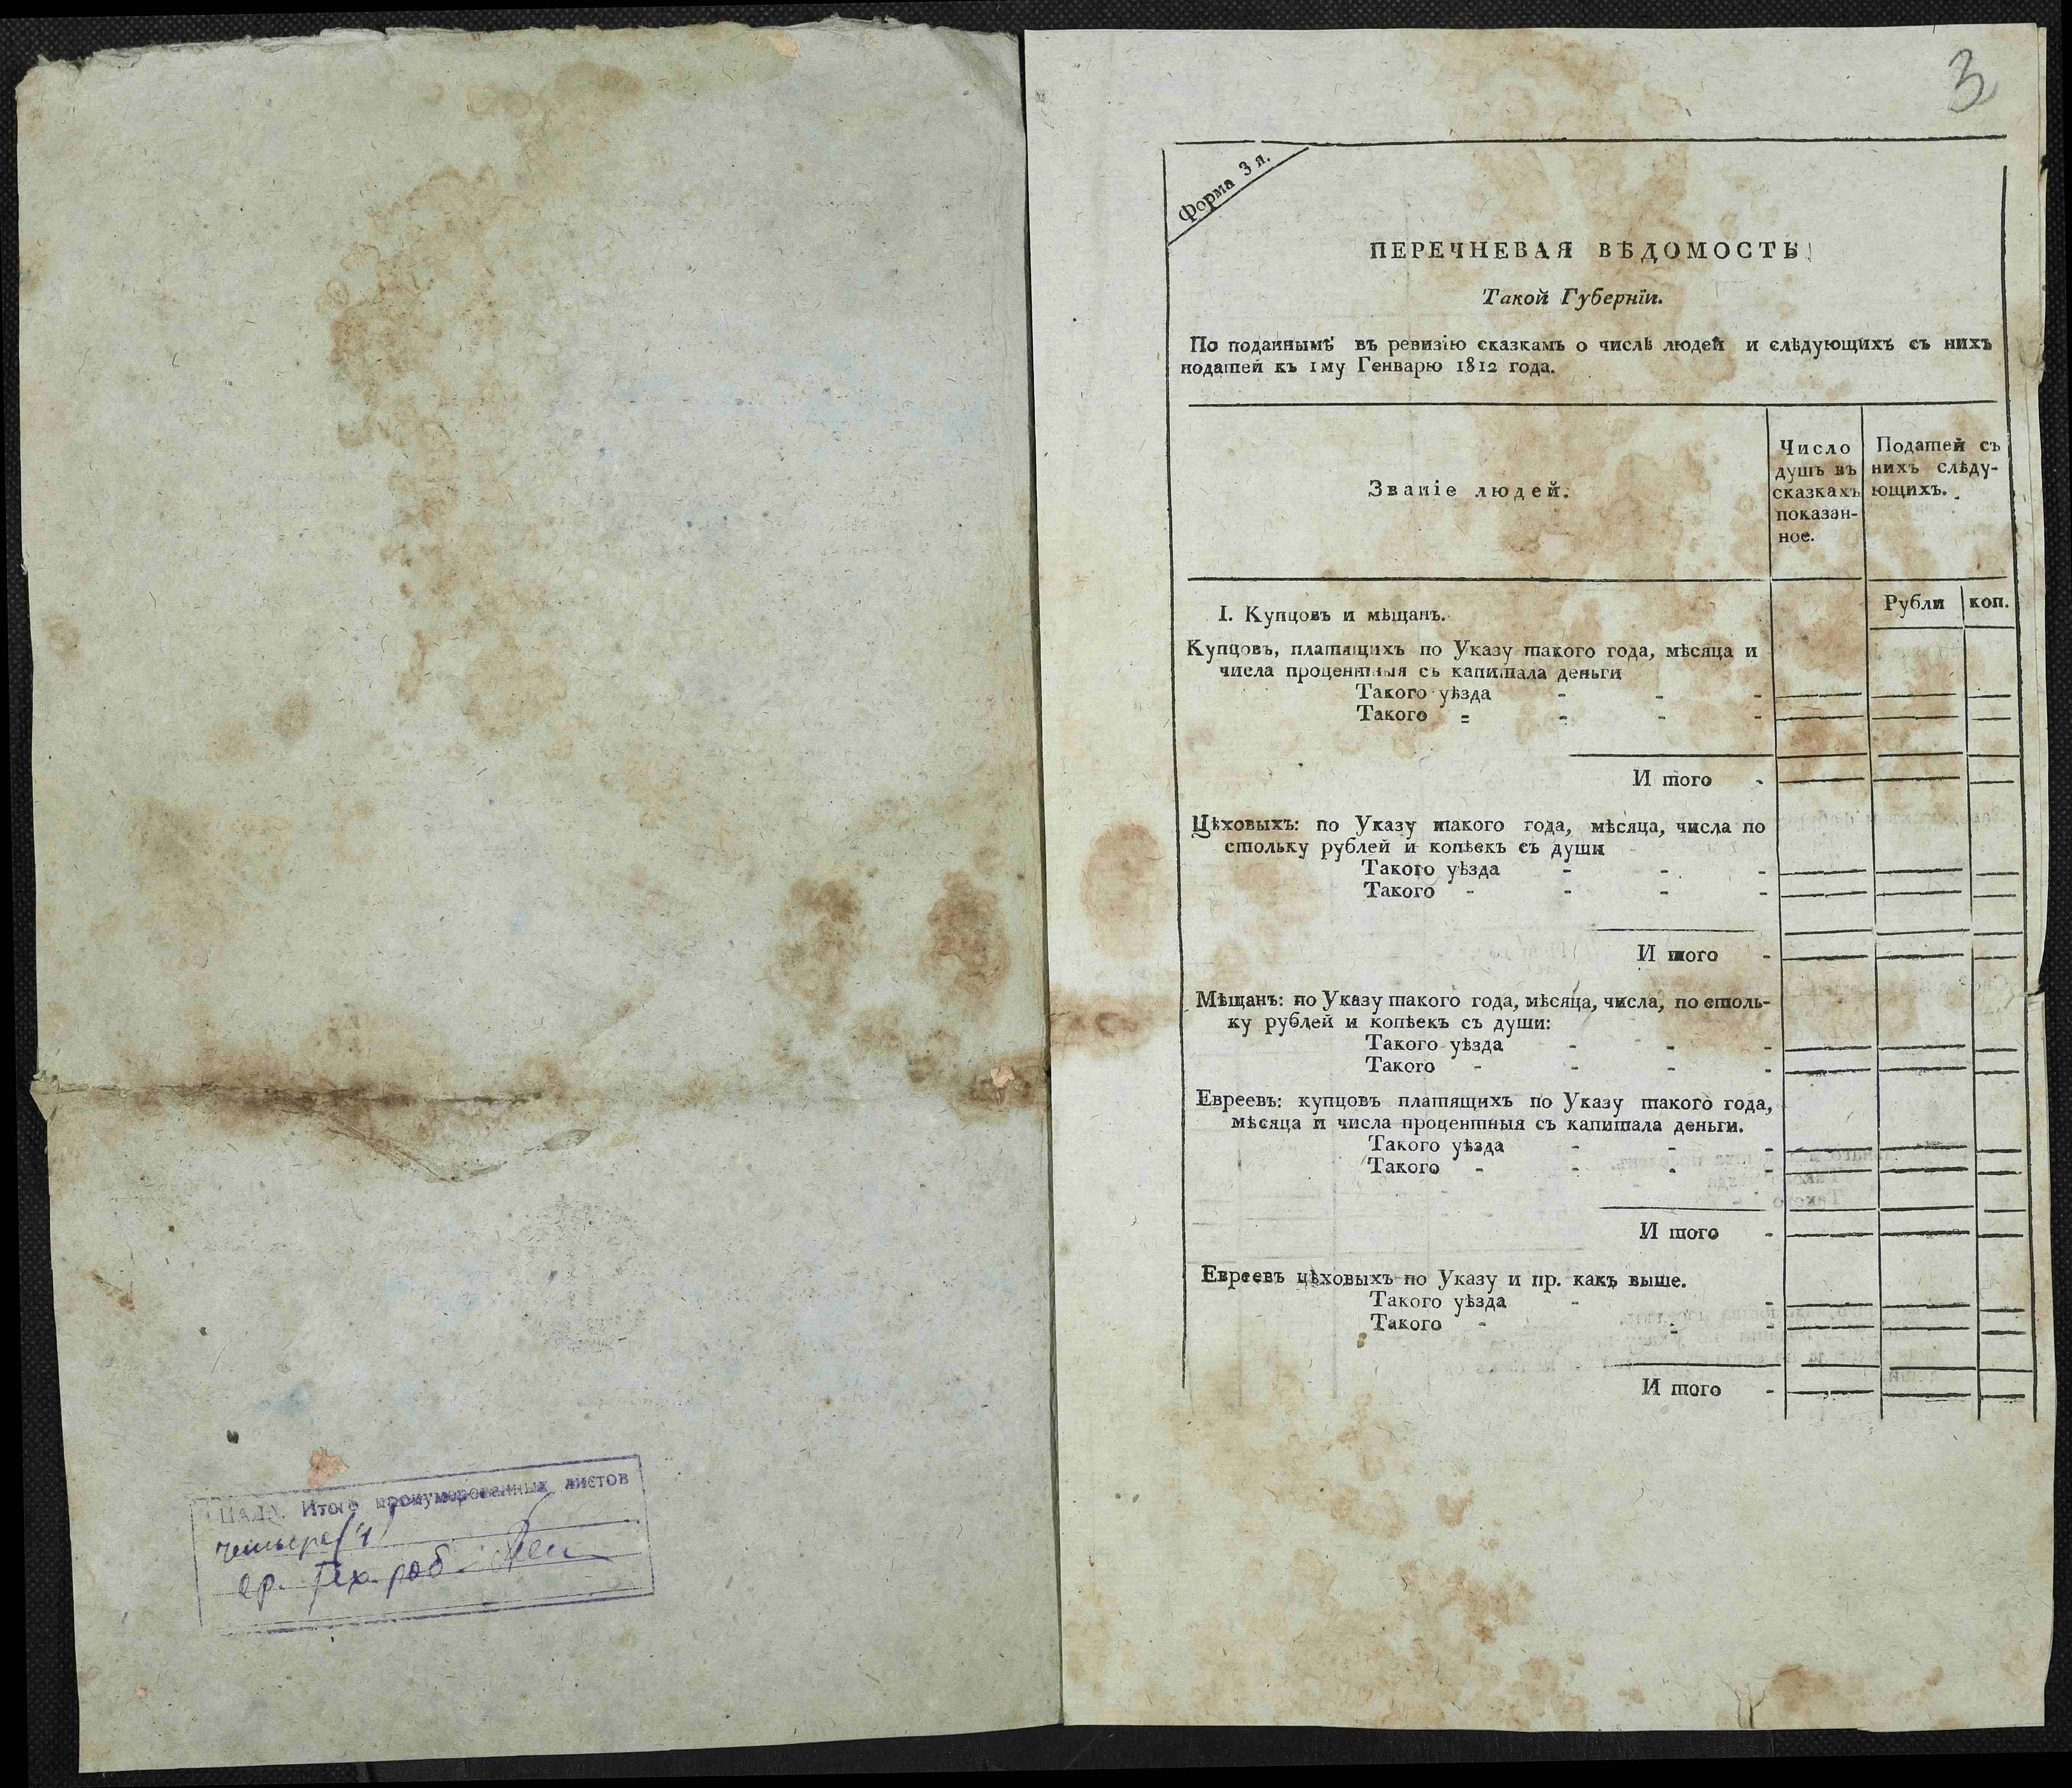 Итого пронумерованных листов
четыре (4)
3
Форма 3 я.
ПЕРЕЧНЕВАЯ ВѢДОМОСТЬ
Такой Губернїи.
По поданнымъ въ ревизїю сказкамъ о числѣ людей и слѣдующихъ съ нихъ
податей къ 1му Генварю 1812 года.
Званїе людей.
Число
душъ въ
сказкахъ
показан-
ное.
Податей съ
нихъ слѣду-
ющихъ.
Рубли коп.
I. Купцовъ и мѣщанъ.
Купцовъ, платящихъ по Указу такого года, мѣсяца и
числа процентныя съ капитала деньги
Такого уѣзда - - -
Такого = - - -
И того -
Цѣховыхъ: по Указу такого года, мѣсяца, числа по
стольку рублей и копѣекъ съ души
Такого уѣзда - - -
Такого - - - -
И того -
Мѣщанъ: по Указу такого года, мѣсяца, числа, по столь-
ку рублей и копѣекъ съ души:
Такого уѣзда - - -
Такого - - - -
Евреевъ: купцовъ платящихъ по Указу такого года,
мѣсяца и числа процентныя съ капитала деньги.
Такого уѣзда - - -
Такого - - - -
И того -
Евреевъ цѣховыхъ по Указу и пр. какъ выше.
Такого уѣзда - -
Такого - - -
И того -